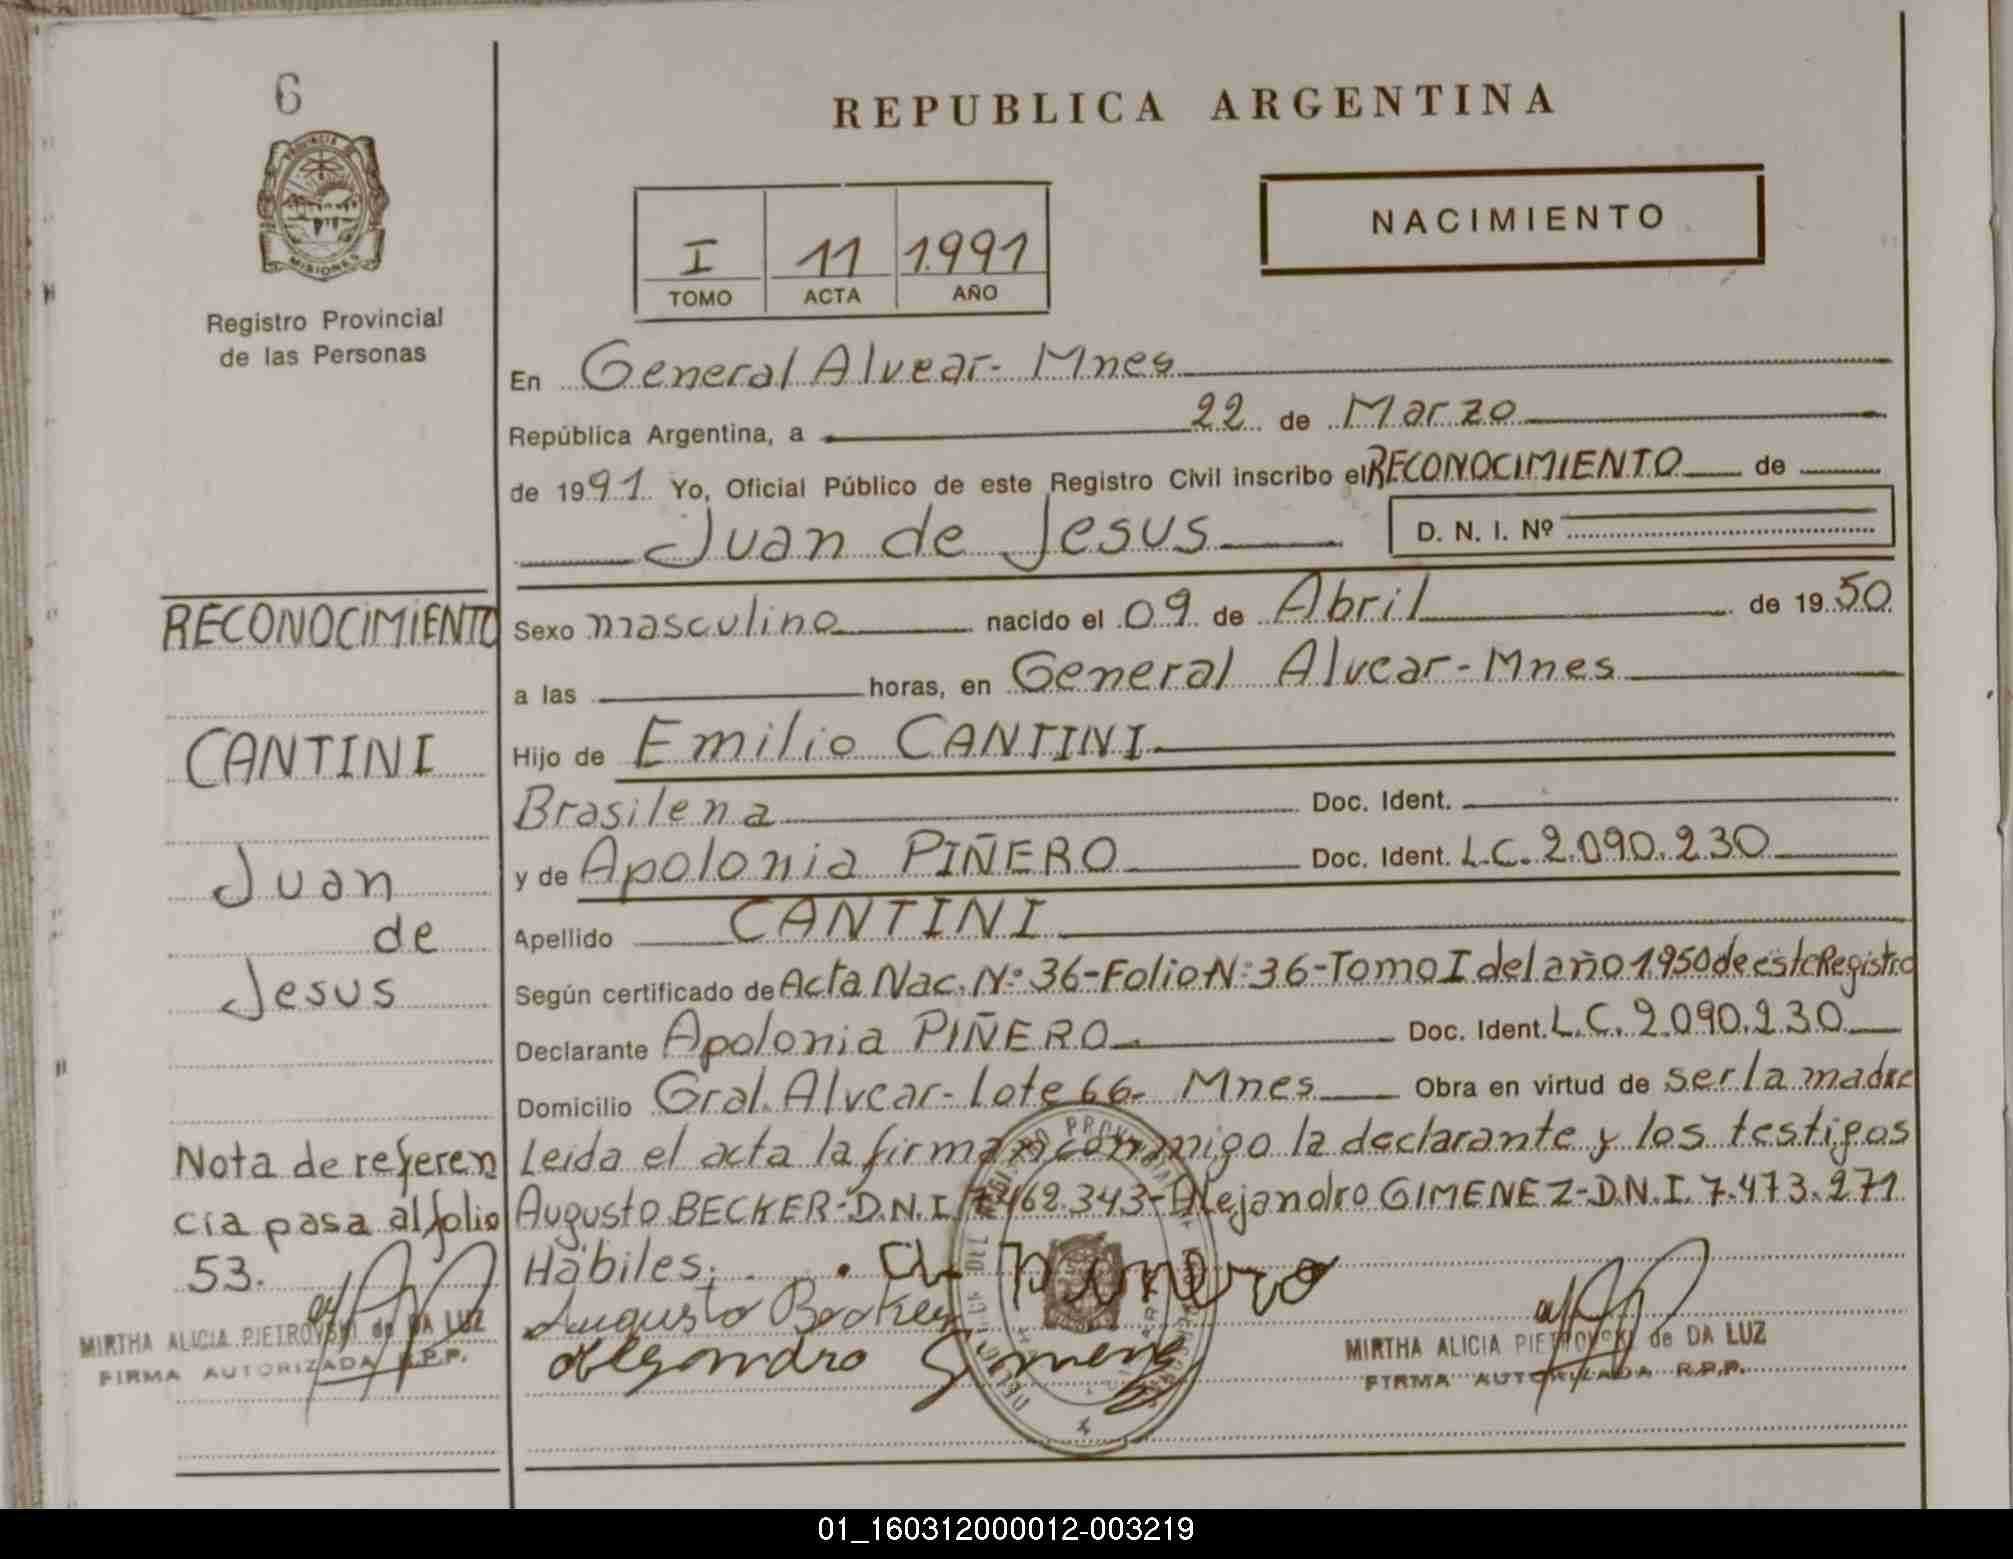 6
PROVINCIA DE
MISIONES
Registro Provincial
de las Personas
RECONOCIMIENTO
CANTINI
Juan
de
Jesus
Nota de referen
cia pasa al folio
53.
MIRTHA ALICIA PIETROVSKI de DA LUZ
FIRMA AUTORIZADA R.P.P.
REPUBLICA ARGENTINA
I 11 1.991
TOMO ACTA AÑO
NACIMIENTO
En General Alvear - Mnes
República Argentina, a 22 de Marzo
de 1991 Yo, Oficial Público de este Registro Civil inscribo el RECONOCIMIENTO de
Juan de Jesus D. N. I. Nº
Sexo masculino nacido el 09 de Abril de 1950
a las horas, en General Alvear - Mnes
Hijo de Emilio CANTINI
Brasilena Doc. Ident.
y de Apolonia PIÑERO Doc. Ident. L.C. 2.090.230
Apellido CANTINI
Según certificado de Acta Nac. Nº 36 - Folio Nº 36 - Tomo I del año 1950 de este Registro
Declarante Apolonia PIÑERO Doc. Ident. L.C. 2.090.230
Domicilio Gral. Alvear - Lote 66 - Mnes Obra en virtud de ser la madre
Leida el acta la firman conmigo la declarante y los testigos
Augusto BECKER - D.N.I. 7.462.343 - Alejandro GIMENEZ - D.N.I. 7.473.271
Habiles.
Augusto Becker
MIRTHA ALICIA PIETROVSKI de DA LUZ
FIRMA AUTORIZADA R.P.P.
01_160312000012-003219